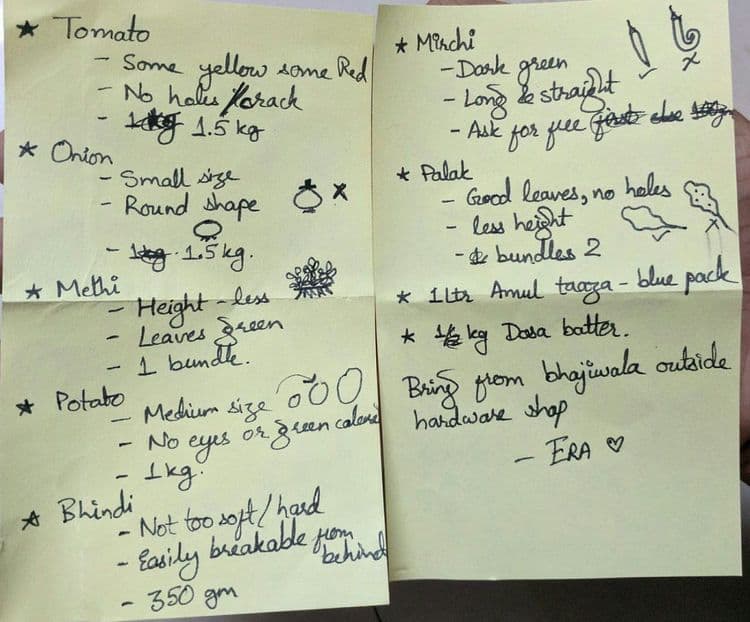 ★ Tomato
- Some yellow some Red
- No holes/crack
- 1.5 kg
★ Onion
- Small size
- Round shape
x
- 1kg 1.5 kg.
★ Methi
- Height - less
- Leaves green
- 1 bundle.
★ Potato
- Medium size
- No eyes or green
- 1 kg.
★ Bhindi
- Not too soft/hard
- Easily breakable from
behind
- 350 gm
★ Mirchi
- Dark green
- Long & straight
x
- Ask for free
★ Palak
- Good leaves, no holes
- less height
x
- bundles 2
★ 1 ltr Amul taaza - blue pack
★ 1/2 kg Dosa batter.
Bring from bhajiwala outside
hardware shop
- ERA ♡